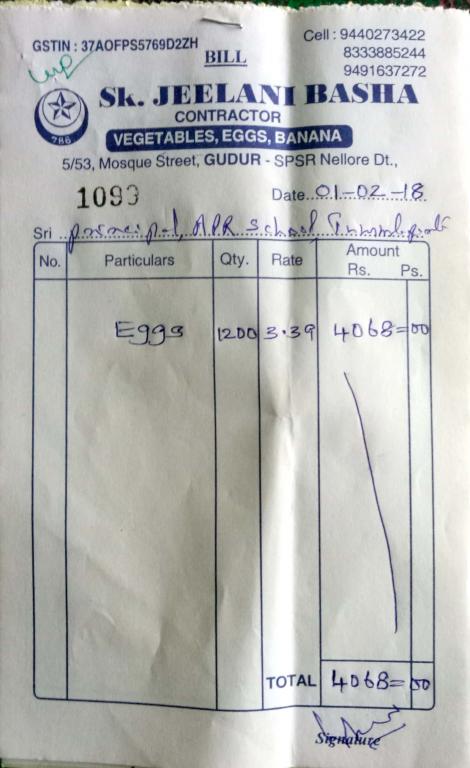 GSTIN : 37AOFPS5769D2ZH
BILL
Cell : 9440273422
8333885244
9491637272
786
Sk. JEELANI BASHA
CONTRACTOR
VEGETABLES, EGGS, BANANA
5/53, Mosque Street, GUDUR - SPSR Nellore Dt.,
1099
Date 01-02-18
Sri Principal, APR School
No. Particulars Qty. Rate Amount Rs. Ps.
Eggs 1200 3.39 4068=00
TOTAL 4068=00
Signature